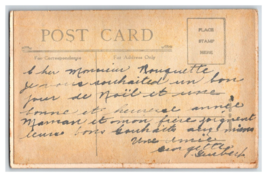 POST CARD
PLACE
STAMP
HERE
For Correspondence
For Address Only
Cher Monsieur Rouquette
Je vous souhaites un bon
jour de Noël et une
bonne et heureuse année
Maman et mon frère joignent
leurs bons souhaits aux miens
Une amie
Georgette